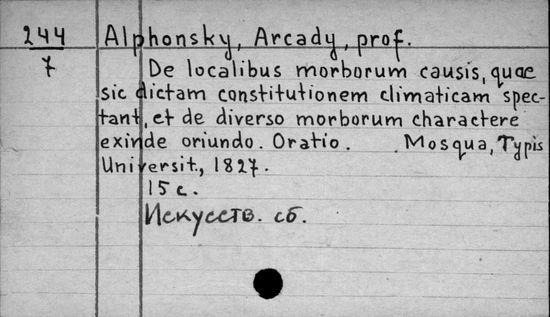 244 Alphonsky, Arcady, prof.
7 De localibus morborum causis, quae
sic dictam constitutionem climaticam spec-
tant, et de diverso morborum charactere
exinde oriundo. Oratio. Mosqua, Typis
Universit., 1827.
15 с.
Искусств. сб.